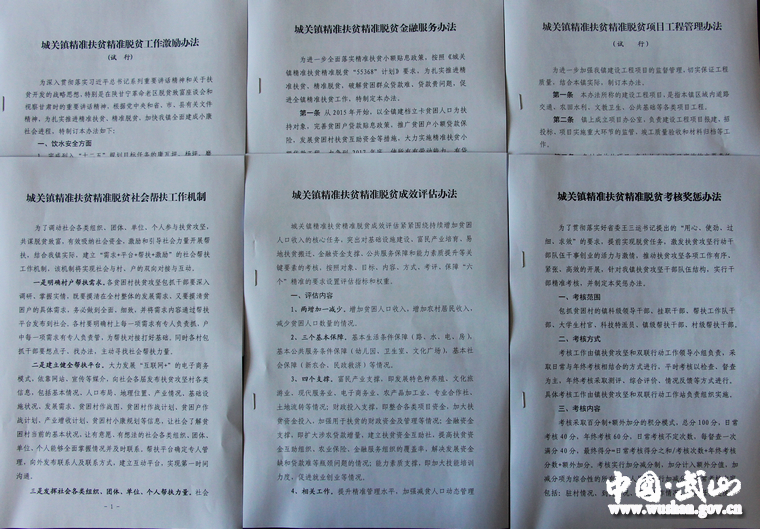 城关镇精准扶贫精准脱贫工作激励办法
（试 行）
为深入贯彻落实习近平总书记系列重要讲话精神和关于扶
贫开发的战略思想，特别是在陕甘宁革命老区脱贫致富座谈会和
视察甘肃时的重要讲话精神，根据党中央和省、市、县有关文件
精神，为扎实推进精准扶贫、精准脱贫，加快我镇全面建成小康
社会进程，特制订本办法如下：
一、饮水安全方面
城关镇精准扶贫精准脱贫金融服务办法
为进一步全面落实精准扶贫小额贴息政策，按照《城关
镇精准扶贫精准脱贫“55368”计划》要求，为扎实推进精准
扶贫、精准脱贫，破解贫困群众贷款难、贷款贵问题，促
进全镇精准扶贫工作，特制定本办法。
第一条 从 2015 年开始，以全镇建档立卡贫困人口为扶
持对象，完善贫困户贷款贴息政策，推广贫困户小额贷款保
险，发展贫困村扶贫互助资金等措施，大力实施精准扶贫小
城关镇精准扶贫精准脱贫项目工程管理办法
（试 行）
为进一步加强我镇建设工程项目的监督管理，切实保证工程
质量，结合本镇实际，制订本办法。
第一条 本办法所称的建设工程项目，是指本镇区域内的道路
交通、农田水利、文教卫生、公共基础等各类项目工程。
第二条 镇上成立项目办公室，负责建设工程项目报建、招
投标、项目实施重大环节的监管、竣工质量验收和材料归档等工
作。
城关镇精准扶贫精准脱贫社会帮扶工作机制
为了调动社会各类组织、团体、单位、个人参与扶贫攻坚，
共谋脱贫致富，有效吸纳社会资金，激励和引导社会力量开展帮
扶，结合我镇实际，建立“需求+平台+帮扶+激励”的社会帮扶
工作机制，该机制将实现社会与村、户的双向对接与互动。
一是明确村户帮扶需求。各贫困村扶贫攻坚包抓干部要深入
调研，掌握实情，既要摸清在全村整体的发展需求，又要摸清贫
困户的具体需求，务必做到全面、细致，并将需求内容通过帮扶
平台发布到社会。各村要明确村上每一项需求有专人负责抓，户
中每一项需求有专人负责管，为帮扶对接打好基础，同时各村包
抓干部要想点子，找办法，主动寻找社会帮扶力量。
二是建立健全帮扶平台。大力发展“互联网+”的电子商务
模式，依靠网站，宣传等媒介，向社会各届发布扶贫攻坚村各类
信息，包括基本情况，人口布局、地理位置，产业情况，基础设
施状况，发展需求，贫困村作战图，贫困村作战计划，贫困户作
战计划，产业增收计划，贫困村小康规划等信息，让社会了解贫
困村当前的基本状况，让有意愿，有想法的社会各类组织、团体、
单位、个人能够全面掌握情况并及时联系，帮扶平台确定专人管
理，向外发布联系人及联系方式，建立互动平台，实现第一时间
沟通。
三是发挥社会各类组织、团体、单位、个人帮扶力量，社会
- 1 -
城关镇精准扶贫精准脱贫成效评估办法
城关镇精准扶贫精准脱贫成效评估紧紧围绕持续增加贫困
人口收入的核心任务，突出对基础设施建设、富民产业培育、易
地扶贫搬迁、金融资金支撑、公共服务保障和能力素质提升等关
键要素的考核，按照对象、目标、内容、方式、考评、保障“六
个”精准的要求设置评估指标和权重。
一、评估内容
1、两增加一减少。增加贫困人口收入，增加农村居民收入，
减少贫困人口数量的情况。
2、三个基本保障。基本生活条件保障（路、水、电、房）、
基本公共服务条件保障（幼儿园、卫生室、文化广场）、基本社会
保障（新农合、民政救济）等情况。
3、四个支撑。富民产业支撑，即发展特色种养殖、文化旅游
业、现代服务业、电子商务业、农产品加工业、专业合作社、
土地流转等情况；财政投入支撑，即整合各类项目资金，加大扶
贫资金投入，加强用于扶贫的财政资金及管理等情况；金融资金
支撑，即扩大涉农贷款增量，建立扶贫资金互助社，提高扶贫资金
互助组织、农业保险、金融服务组织的覆盖率，解决发展资金
缺和贷款难等瓶颈问题的情况；能力素质支撑，即加大技能培训
力度，促进就业创业等情况。
4、相关工作。提升精准管理水平，加强减贫人口动态管理
城关镇精准扶贫精准脱贫考核奖惩办法
为了贯彻落实好省委王三运书记提出的“用心、使劲、过
细、水效”的要求，提前实现脱贫任务，激发扶贫攻坚行动干
部队伍干事创业的活力与激情，推动扶贫攻坚各项工作有序、
紧张、高效的开展。针对我镇扶贫攻坚干部队伍结构，实行干
部精准考核，并制定本奖惩办法。
一、考核范围
包抓贫困村的镇科级领导干部、挂职干部、帮扶工作队干
部、大学生村官、科技特派员、镇级帮扶干部、村级帮扶干部。
二、考核方式
考核工作由镇扶贫攻坚和双联行动工作领导小组负责，采
取日常与年终考核相结合的方式进行，平时考核以检查、督查
为主，年终考核采取测评、综合评价、情况反馈等方式进行。
具体考核工作由镇扶贫攻坚和双联行动工作站负责组织实施。
三、考核内容
考核采取百分制+额外加分的积分模式，总分 100 分，日常
考核 40 分，年终考核 60 分。日常考核不定次数，每督查一次
满分 40 分，最终得分=日常考核得分之和/考核次数+年终考核
分数+额外加分。考核实行加分减分制，加分计入额外分值，加
中国·武山
www.wushan.gov.cn